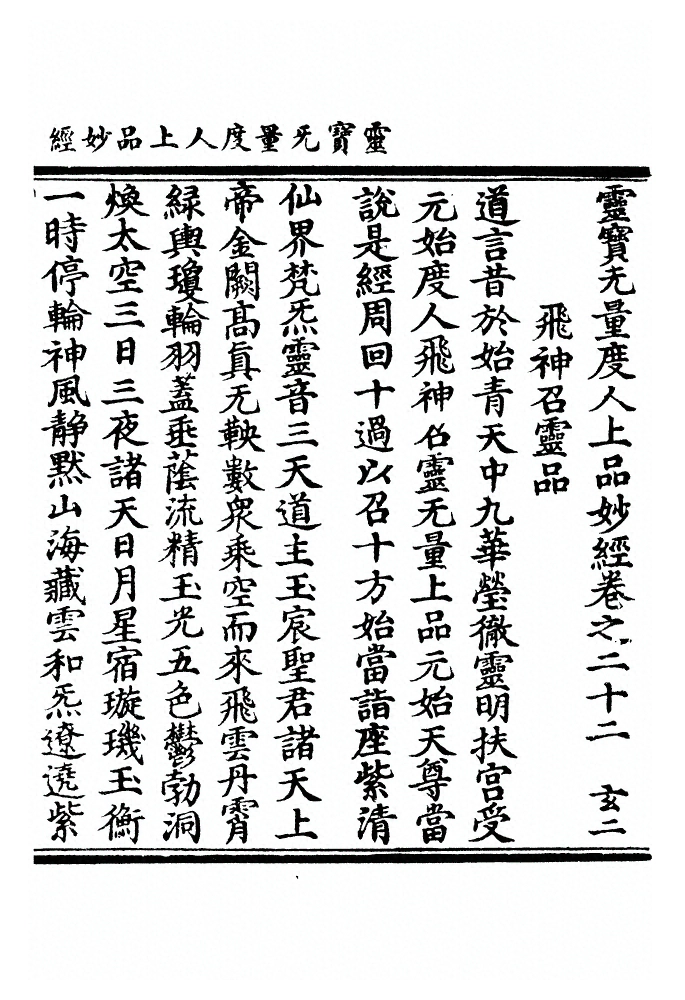 靈寶无量度人上品妙經
靈寶无量度人上品妙經卷之二十二 玄二
飛神召靈品
道言昔於始青天中九華瑩徹靈明扶宮受
元始度人飛神召靈无量上品元始天尊當
說是經周回十過以召十方始當詣座紫清
仙界梵炁靈音三天道主玉宸聖君諸天上
帝金闕高真无鞅數衆乘空而來飛雲丹霄
緑輿瓊輪羽蓋垂蔭流精玉光五色鬱勃洞
煥太空三日三夜諸天日月星宿璇璣玉衡
一時停輪神風静默山海藏雲和炁遼遶紫